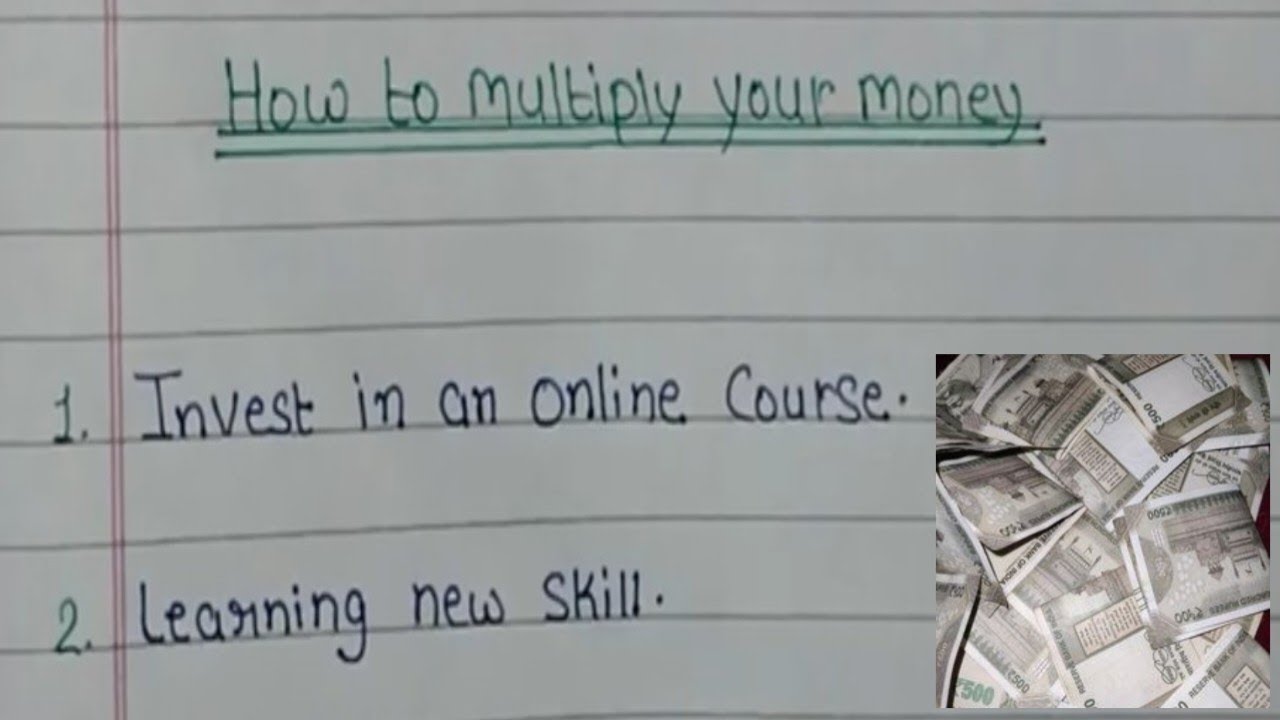 How to multiply your money
1. Invest in an online Course.
2. Learning new skill.
500
₹500
₹500